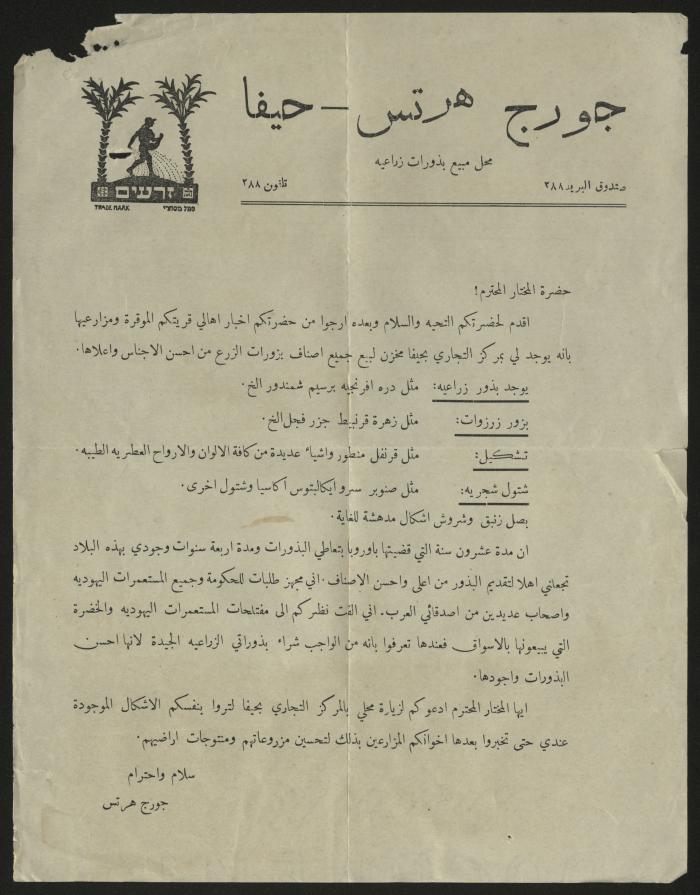 جورج هرتس - حيفا
محل مبيع بذورات زراعيه
صندوق البريد ٢٨٨ تلفون ٢٨٨
זרעים
TRADE MARK סמל מסחרי
حضرة المختار المحترم!
اقدم لحضرتكم التحيه والسلام وبعده ارجوا من حضرتكم اخبار اهالي قريتكم الموقرة ومزارعيها
بانه يوجد لي بمركز التجاري بحيفا مخزن لبيع جميع اصناف بزورات الزرع من احسن الاجناس واعلاها.
يوجد بذور زراعيه: مثل دره افرنجيه برسيم شمندور الخ.
بزور زرزوات: مثل زهرة قرنبيط جزر فجل الخ.
تشكيل: مثل قرنفل منطور واشياء عديدة من كافة الالوان والارواح العطريه الطيبه.
شتول شجريه: مثل صنوبر سرو ايكالبتوس آكاسيا وشتول اخرى.
بصل زنبق وشروش اشكال مدهشة للغاية.
ان مدة عشرون سنة التي قضيتها باوروبا بتعاطي البذورات ومدة اربعة سنوات وجودي بهذه البلاد
تجعلني اهلا لتقديم البذور من اعلى واحسن الاصناف. اني مجهز طلبات للحكومة وجميع المستعمرات اليهوديه
واصحاب عديدين من اصدقائي العرب. اني الفت نظركم الى مفتلحات المستعمرات اليهوديه والخضرة
التي يبيعونها بالاسواق فعندها تعرفوا بانه من الواجب شراء بذوراتي الزراعيه الجيدة لانها احسن
البذورات واجودها.
ايها المختار المحترم ادعوكم لزيارة محلي بالمركز التجاري بحيفا لتروا بنفسكم الاشكال الموجودة
عندي حتى تخبروا بعدها اخوانكم المزارعين بذلك لتحسين مزروعاتهم ومنتوجات اراضيهم.
سلام واحترام
جورج هرتس